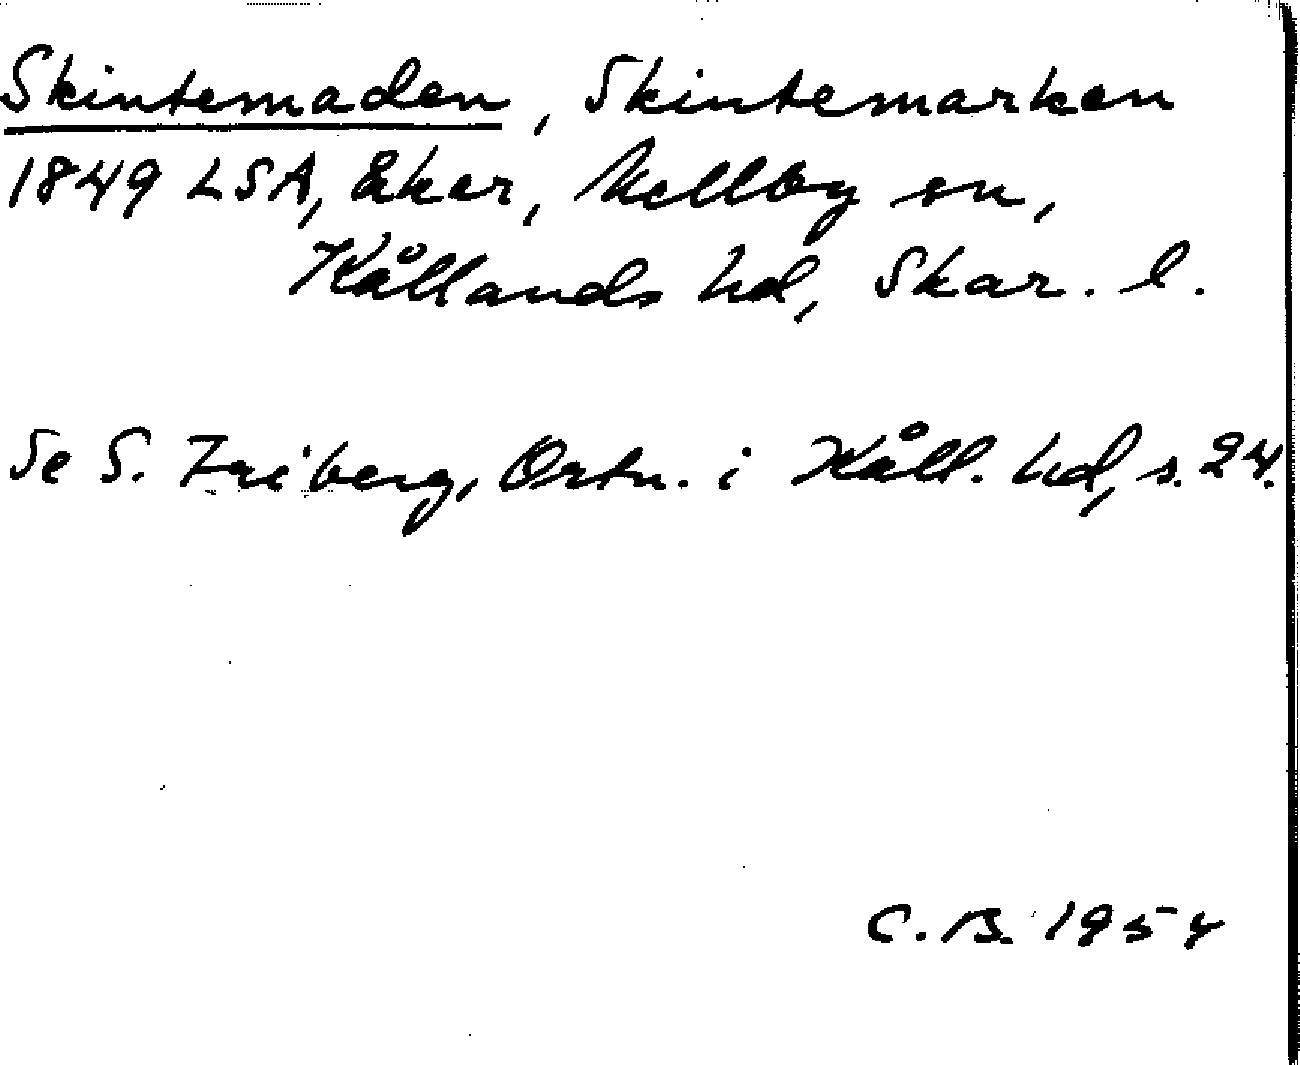 Skintemaden, Skintemarken
1849 LSA, Eker, Mellby sn,
Kållands hd, Skar. l.
Se S. Friberg, Ortn. i Kåll. hd, s. 24.
C. B. 1954